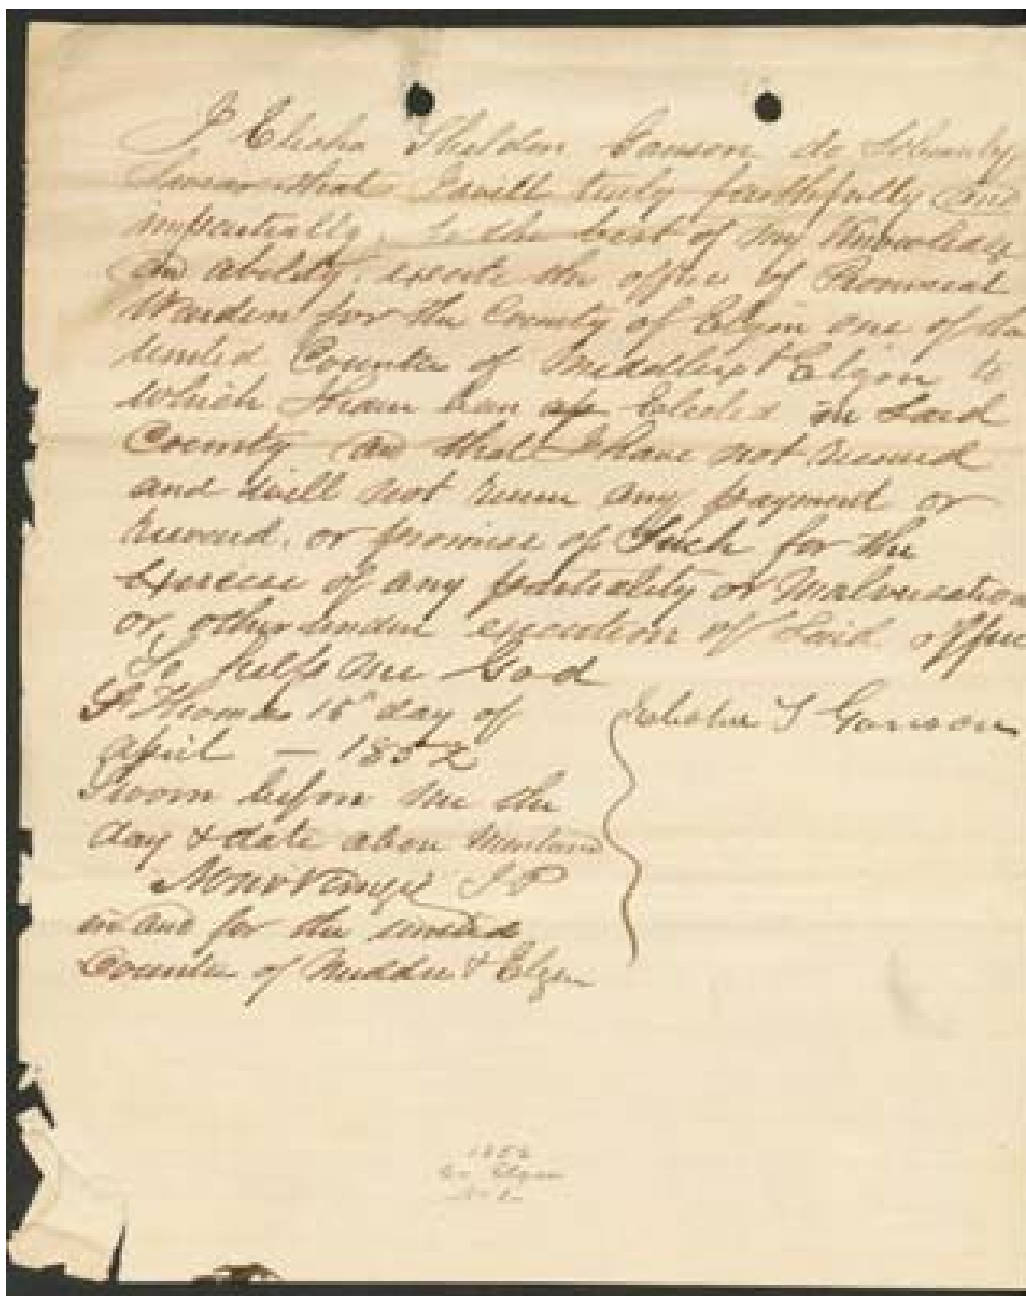 I Elisha Sheldon Ganson do Solemnly
Swear that I will truly faithfully and
impartially, to the best of my Knowledge
and ability, execute the office of Provincial
Warden for the County of Elgin one of the
United Counties of Middlesex & Elgin to
which I have been Elected in Said
County and that I have not received
and will not receive any payment or
reward, or promise of Such for the
Exercise of any partiality or Malversation
or other undue execution of Said office
So help me God
St Thomas day of
April — 1852
Elisha S Ganson
Sworn before me the
day & date above
J P
in and for the united
Counties of Middx & Elgin
1852
Co Elgin